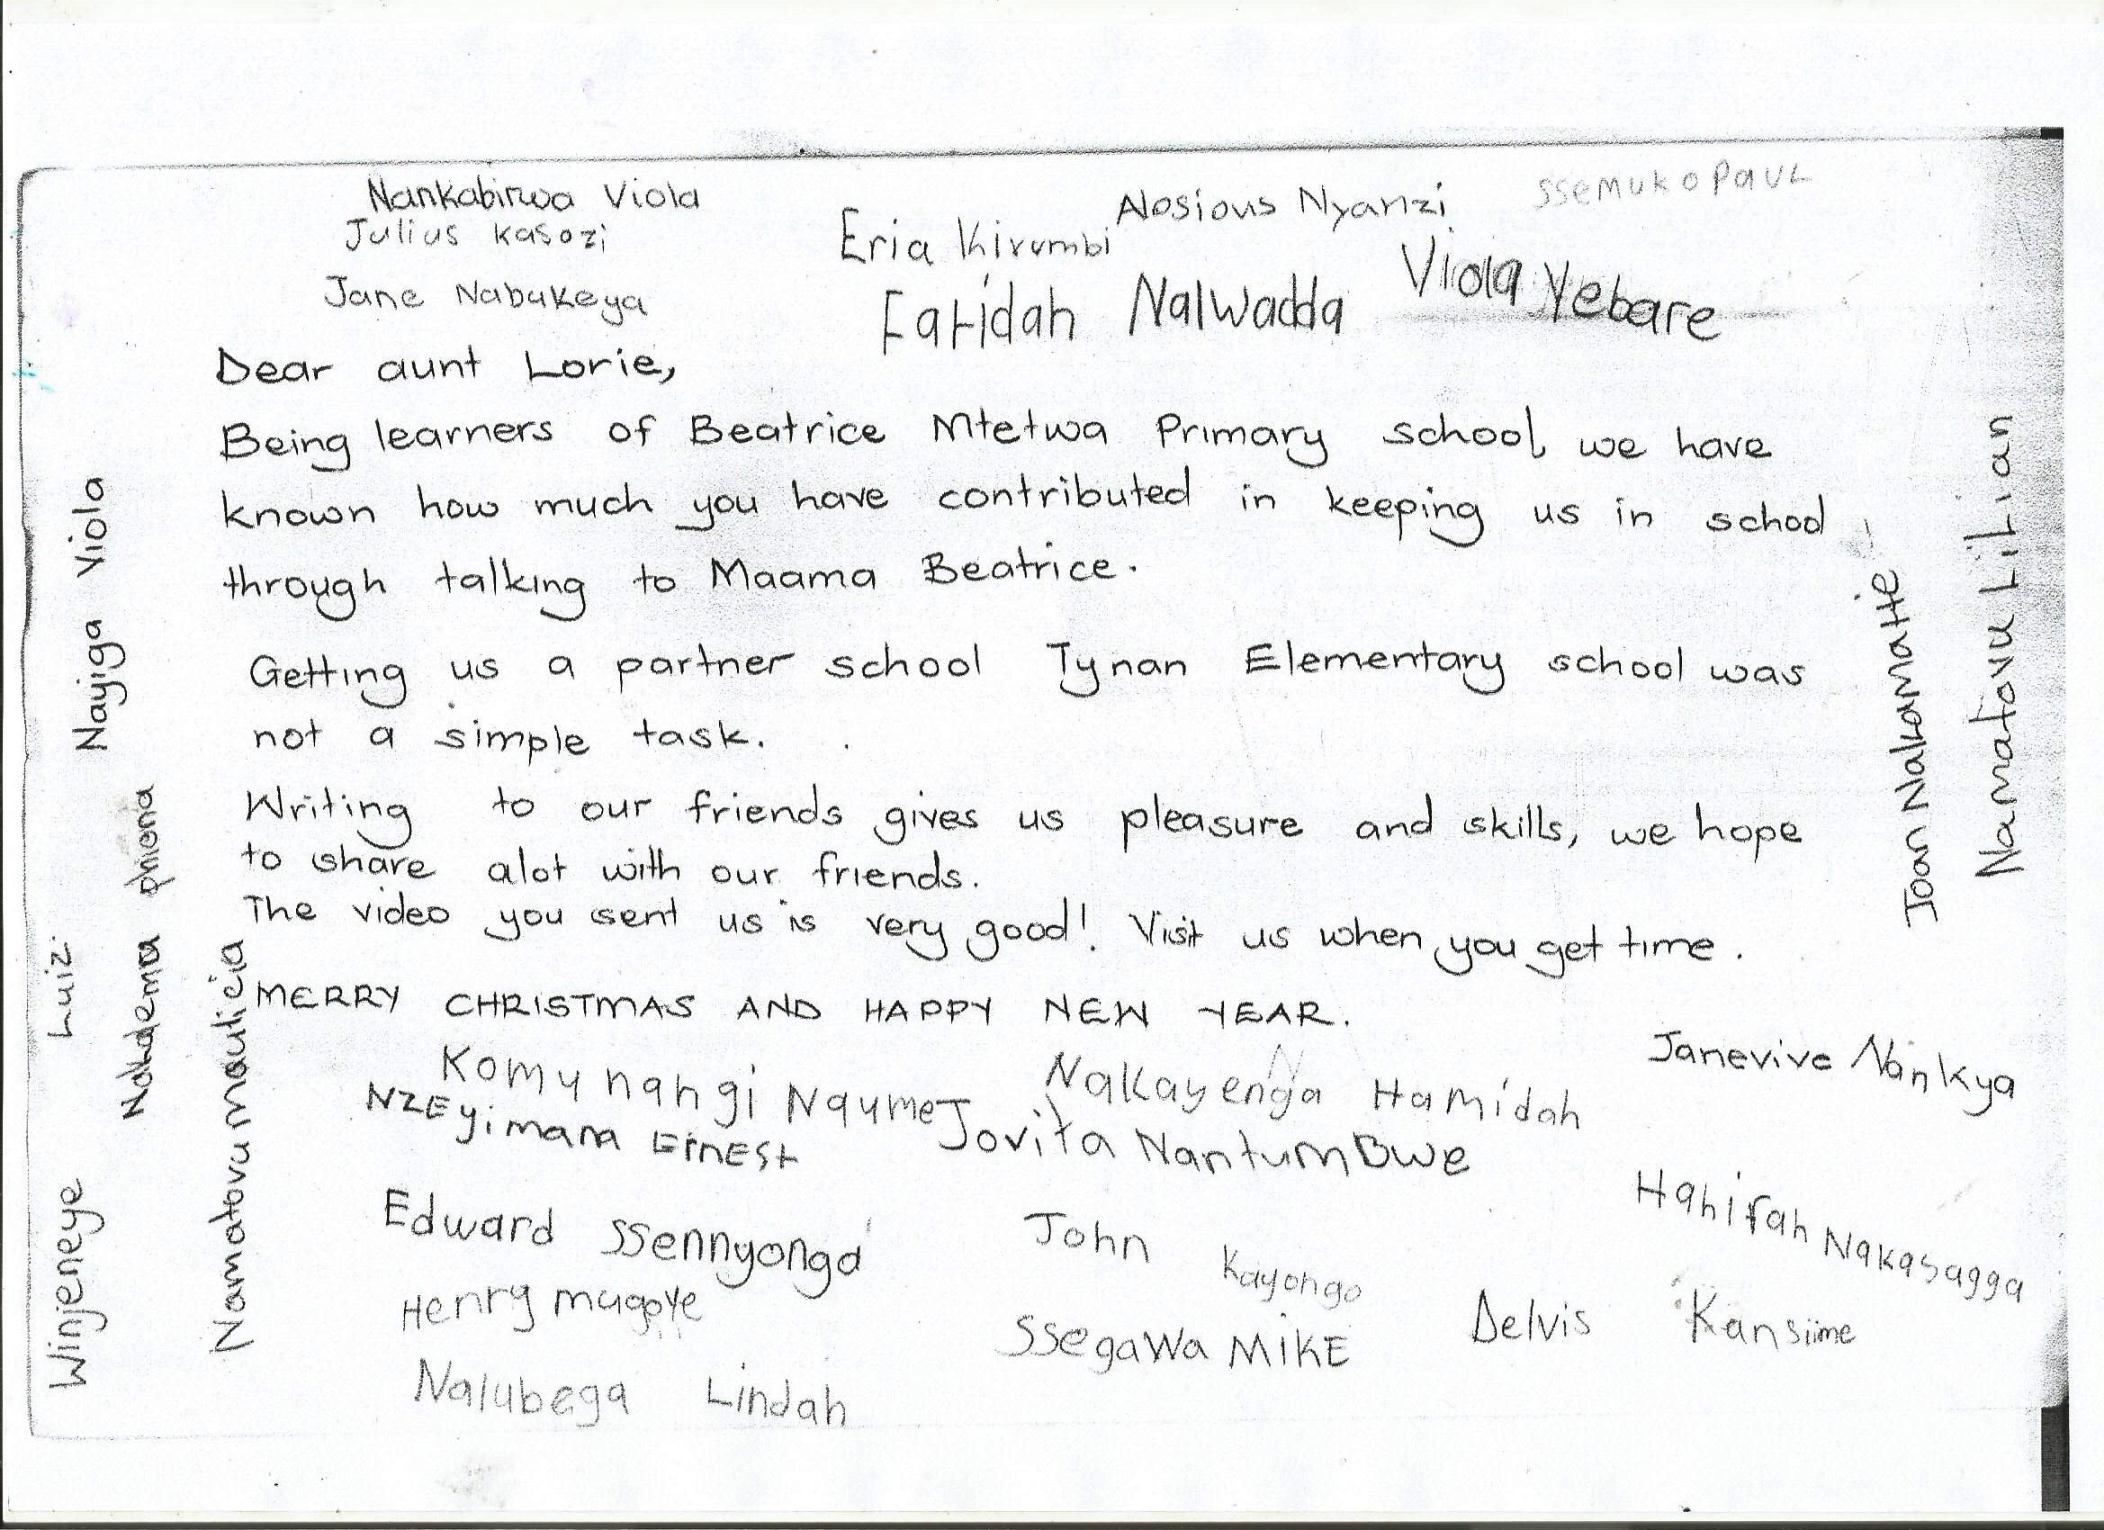 Nankabirwa Viola
Julius Kasozi
Jane Nabukeya
Eria Kirumbi
Alosious Nyanzi
SSEMUKO PAUL
Faridah Nalwadda
Viola Yebare
Dear aunt Lorie,
Being learners of Beatrice Mtetwa Primary school, we have
known how much you have contributed in keeping us in school
through talking to Maama Beatrice.
Getting us a partner school Tynan Elementary school was
not a simple task.
Writing to our friends gives us pleasure and skills, we hope
to share alot with our friends.
The video you sent us is very good! Visit us when you get time.
MERRY CHRISTMAS AND HAPPY NEW YEAR.
Komunahgi Naume
NZEyimana ErnEst
Nakayenga Hamidah
Jovita NantumBwe
Janevive Nankya
Edward SSennyonga
John Kayongo
Hanifah Nakasagga
Henry mugoye
SSegaWa MIKE
Delvis Kansiime
Nalubega Lindah
Nayiga Viola
Luiz
Winjeneye
Nakdema phiona
Namatovu maulicia
Joan Nakamatte
Namatovu LiLian